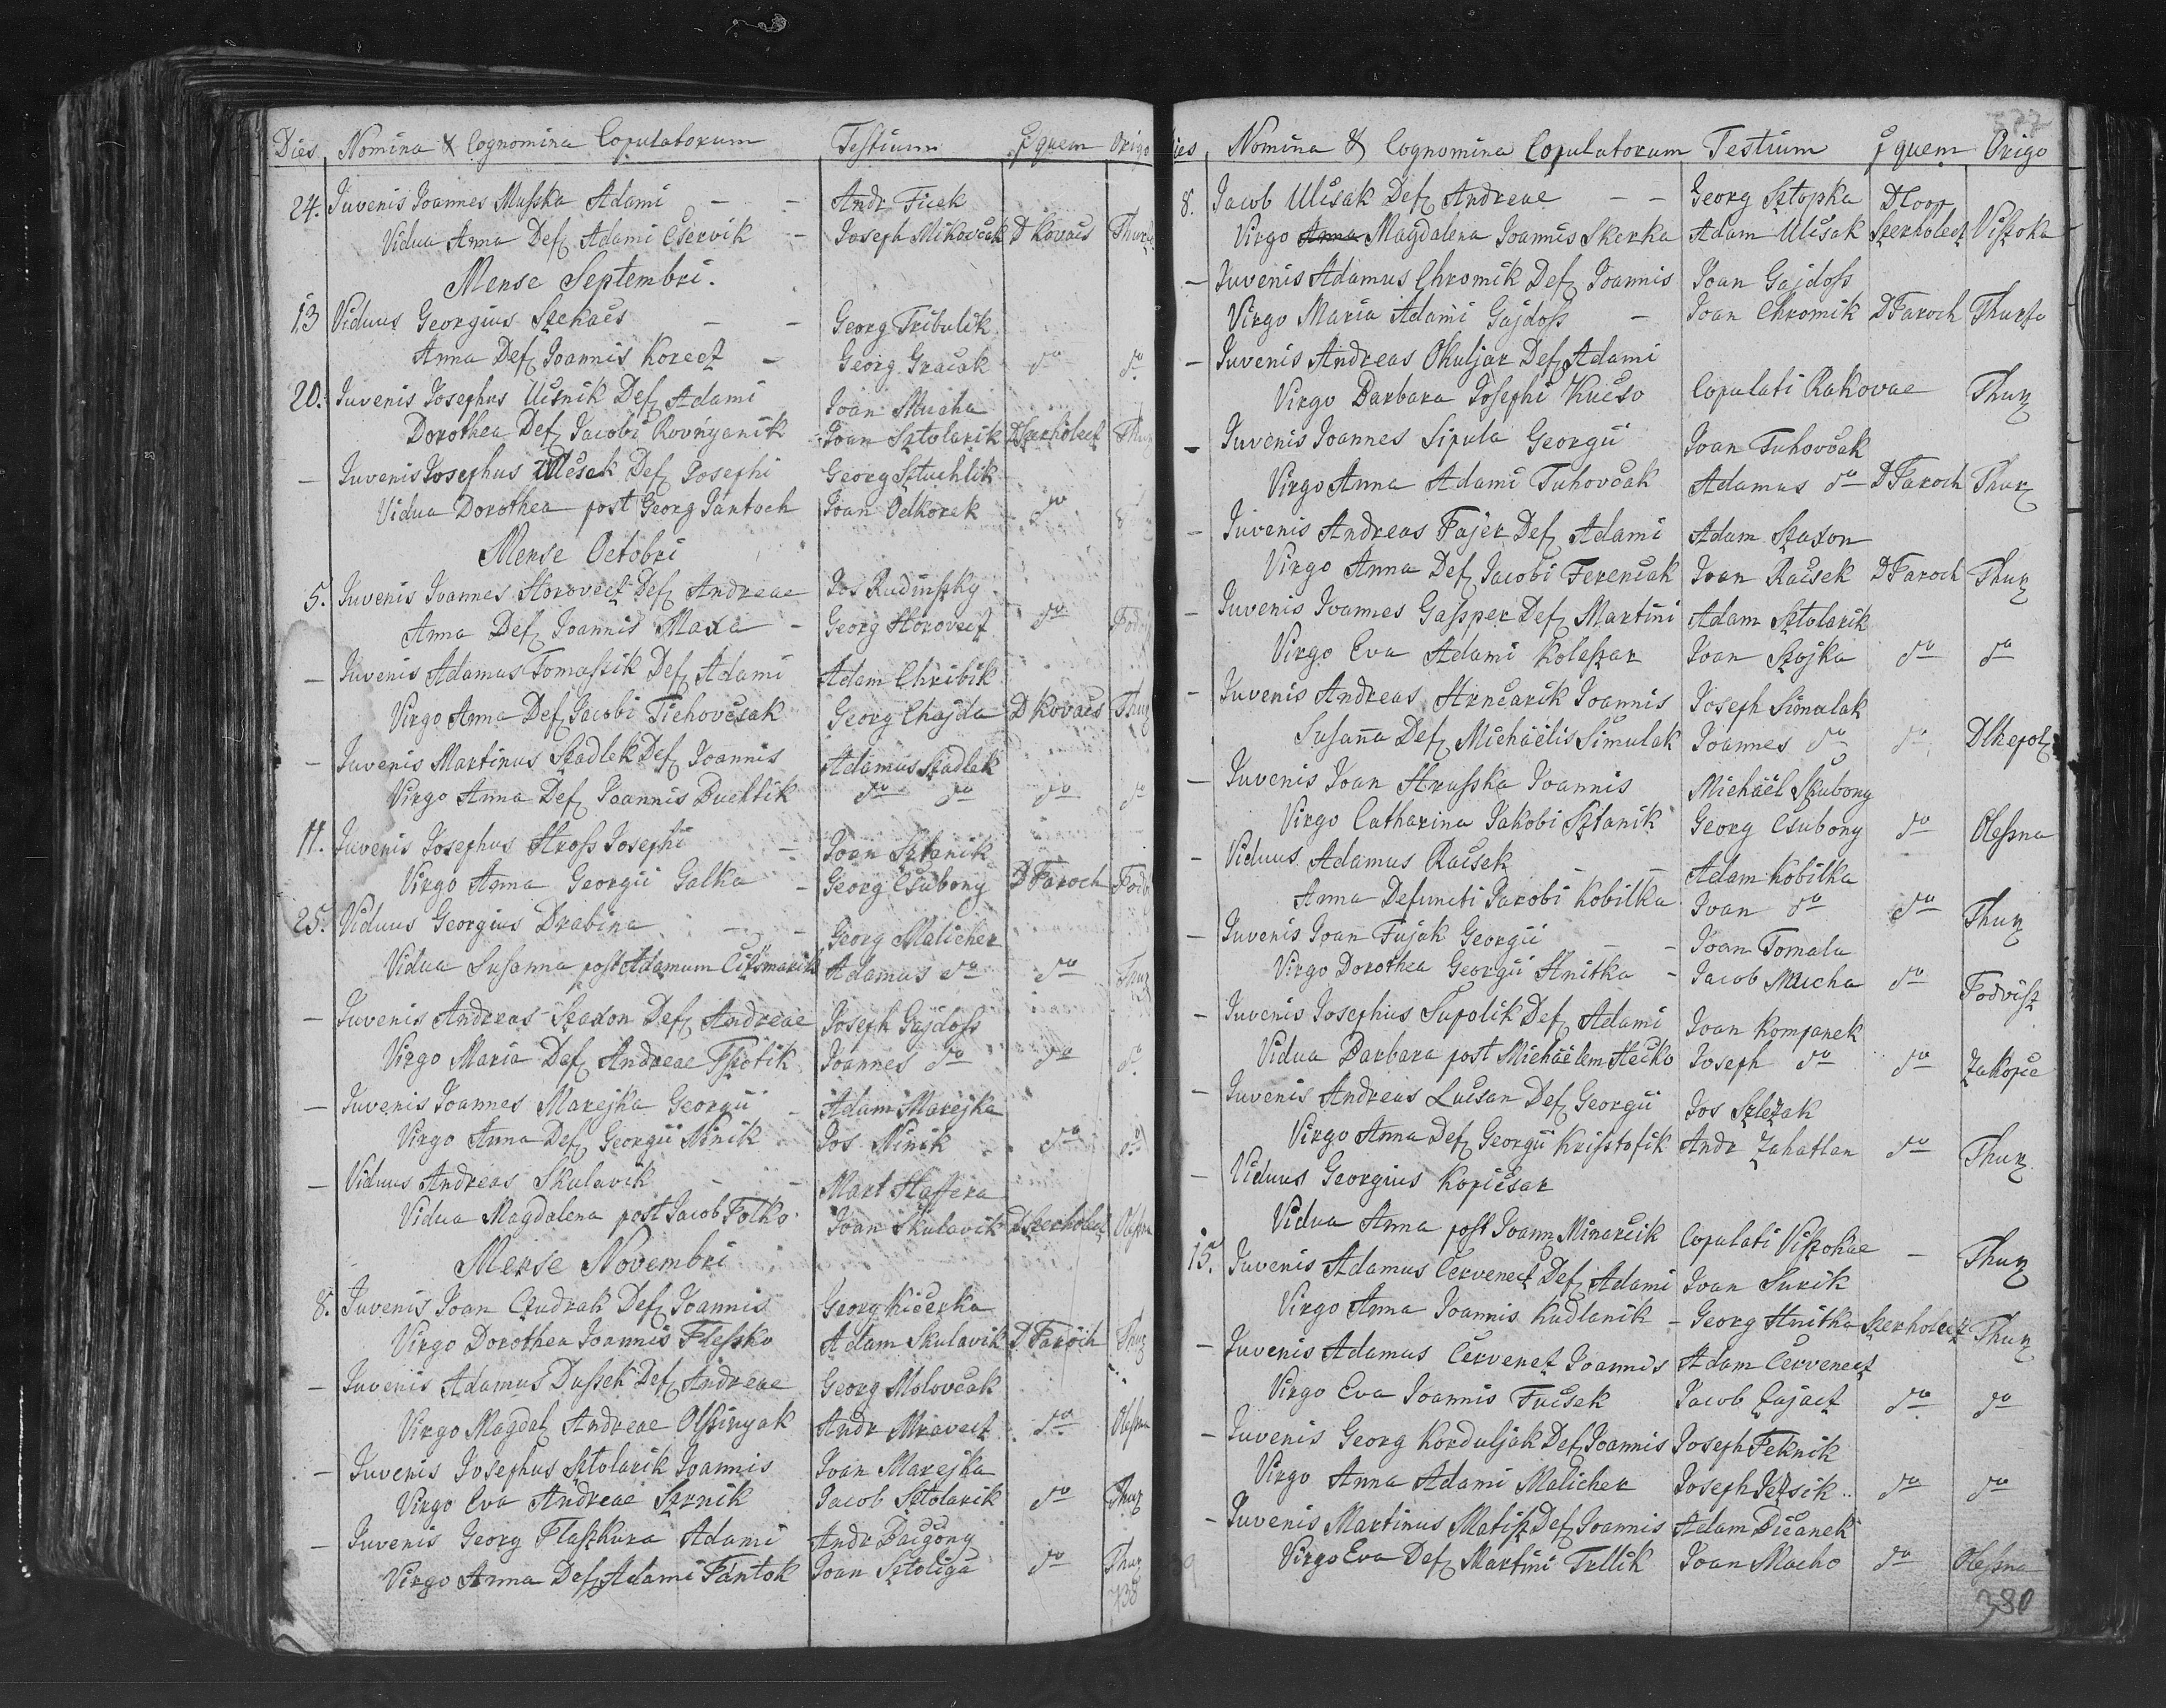 Dies Nomina & Cognomina Copulatorum Testium ꝑ quem Origo
24. Juvenis Joannes Muſska Adami - - Andr Ficek
Vidua Anna Def Adami Cservik - Joseph Mikovčak D Kovacs Thurz
Mense Septembri.
13 Viduus Georgius Szekacs - - Georg Tribulik
Anna Def Joannis Korect - Georg Gracak do do
20. Juvenis Josephus Ulisnik Def Adami Joan Mucha
Dorothea Def Jacobi Rovnyanik Joan Sztolarik D Szerholecz Thurz
- Juvenis Josephus Ulicsak Def Josephi Georg Sztuchlik
Vidua Dorothea post Georg Jantoch Joan Odkorek do
Mense Octobri
5. Juvenis Joannes Horovect Def Andreae Jos Rudinszky
Anna Def Joannis Maxa - Georg Horovect do Podv
- Juvenis Adamus Tomaszik Def Adami Adam Chribik
Virgo Anna Def Jacobi Tichovcsak Georg Chajda D Kovacs Thurz
- Juvenis Martinus Szadlek Def Joannis Adamus Szadlek
Virgo Anna Def Joannis Buchtik do do do do
11. Juvenis Josephus Hroſs Josephi - Joan Sztanik
Virgo Anna Georgii Galka - Georg Csubony D Faroch Podv
25. Viduus Georgius Drabina - - Georg Malicher
Vidua Susanna post Adamum Cizsmarik Adamus do do Thurz
- Juvenis Andreas Szaxon Def Andreae Joseph Gajdoſs
Virgo Maria Def Andreae Fſzotik Joannes do do do
- Juvenis Joannes Marejka Georgii - Adam Marejka
Virgo Anna Def Georgii Ninik Jos Ninik do do
- Viduus Andreas Skulavik - - Mart Haffera
Vidua Magdalena post Jacob Folko Joan Skulavik D Szerholecz Oleſna
Mense Novembri
8. Juvenis Joan Czudrak Def Joannis Georg Kicerka
Virgo Dorothea Joannis Fleſsko Adam Skulavik D Faroch Thurz
- Juvenis Adamus Duſsek Def Andreae Georg Molovčak
Virgo Magdal Andreae Olſsinyak Andr Mravect do Oleſna
- Juvenis Josephus Sztolarik Joannis Joan Marejka
Virgo Eva Andreae Szrnik Jacob Sztolarik do Thurz
- Juvenis Georg Flaſskura Adami Andr Baigony
Virgo Anna Def Adami Fantok Joan Sztoliga do Thurz
Dies Nomina & Cognomina Copulatorum Testium ꝑ quem Origo
8. Jacob Ulisak Def Andreae - - Georg Sztopka D Coop
Virgo Anna Magdalena Joannis Skerka Adam Ulisak Szerholecz Viſzoka
- Juvenis Adamus Chromik Def Joannis Joan Gajdoſs
Virgo Maria Adami Gajdoſs - Joan Chromik D Faroch Thurzo
- Juvenis Andreas Okuljar Def Adami
Virgo Barbara Josephi Kucso Copulati Rakovae Thurz
- Juvenis Joannes Sipula Georgii Joan Tuhovčak
Virgo Anna Adami Tuhovčak Adamus do D Faroch Thurz
- Juvenis Andreas Fajer Def Adami Adam Szaxon
Virgo Anna Def Jacobi Ferencak Joan Racsek D Faroch Thurz
- Juvenis Joannes Gaſsper Def Martini Adam Sztolarik
Virgo Eva Adami Koleſzar Joan Szojka do do
- Juvenis Andreas Hrncarik Joannis Joseph Simulak
Susana Def Michäelis Simulak Joannes do do Dlhepolz
- Juvenis Joan Hruſska Joannis Michäel Skubony
Virgo Catharina Jakobi Sztanik Georg Csubony do Oleſsna
- Viduus Adamus Racsek - Adam Kobilka
Anna Defuncti Jacobi Kobilka Joan do do Thurz
- Juvenis Joan Fujak Georgii - - Joan Tomala
Virgo Dorothea Georgii Hnitka - Jacob Mucha do Podvisz
- Juvenis Josephus Supolik Def Adami Joan Kompanek
Vidua Barbara post Michäelem Hecko Joseph do do Zakopce
- Juvenis Andreas Lucsan Def Georgii Jos Szlezak
Virgo Anna Def Georgii Kriſstofik Andr Zahatlan do Thurz
- Viduus Georgius Kopicsar
Vidua Anna post Joann Minarcik Copulati Viſzokae - Thurz
15. Juvenis Adamus Cervenect Def Adami Joan Surik
Virgo Anna Joannis Kudlanik - Georg Hnitka Szerholecz Thurz
- Juvenis Adamus Cervenect Joannis Adam Cervenect
Virgo Eva Joannis Fucsek Jacob Cajact do do
- Juvenis Georg Korduljak Def Joannis Joseph Feknik
Virgo Anna Adami Malicher Joseph Jezsik do do
- Juvenis Martinus Matisz Def Joannis Adam Dicanek
Virgo Eva Def Martini Trllik Joan Macho do Oleſsna
380